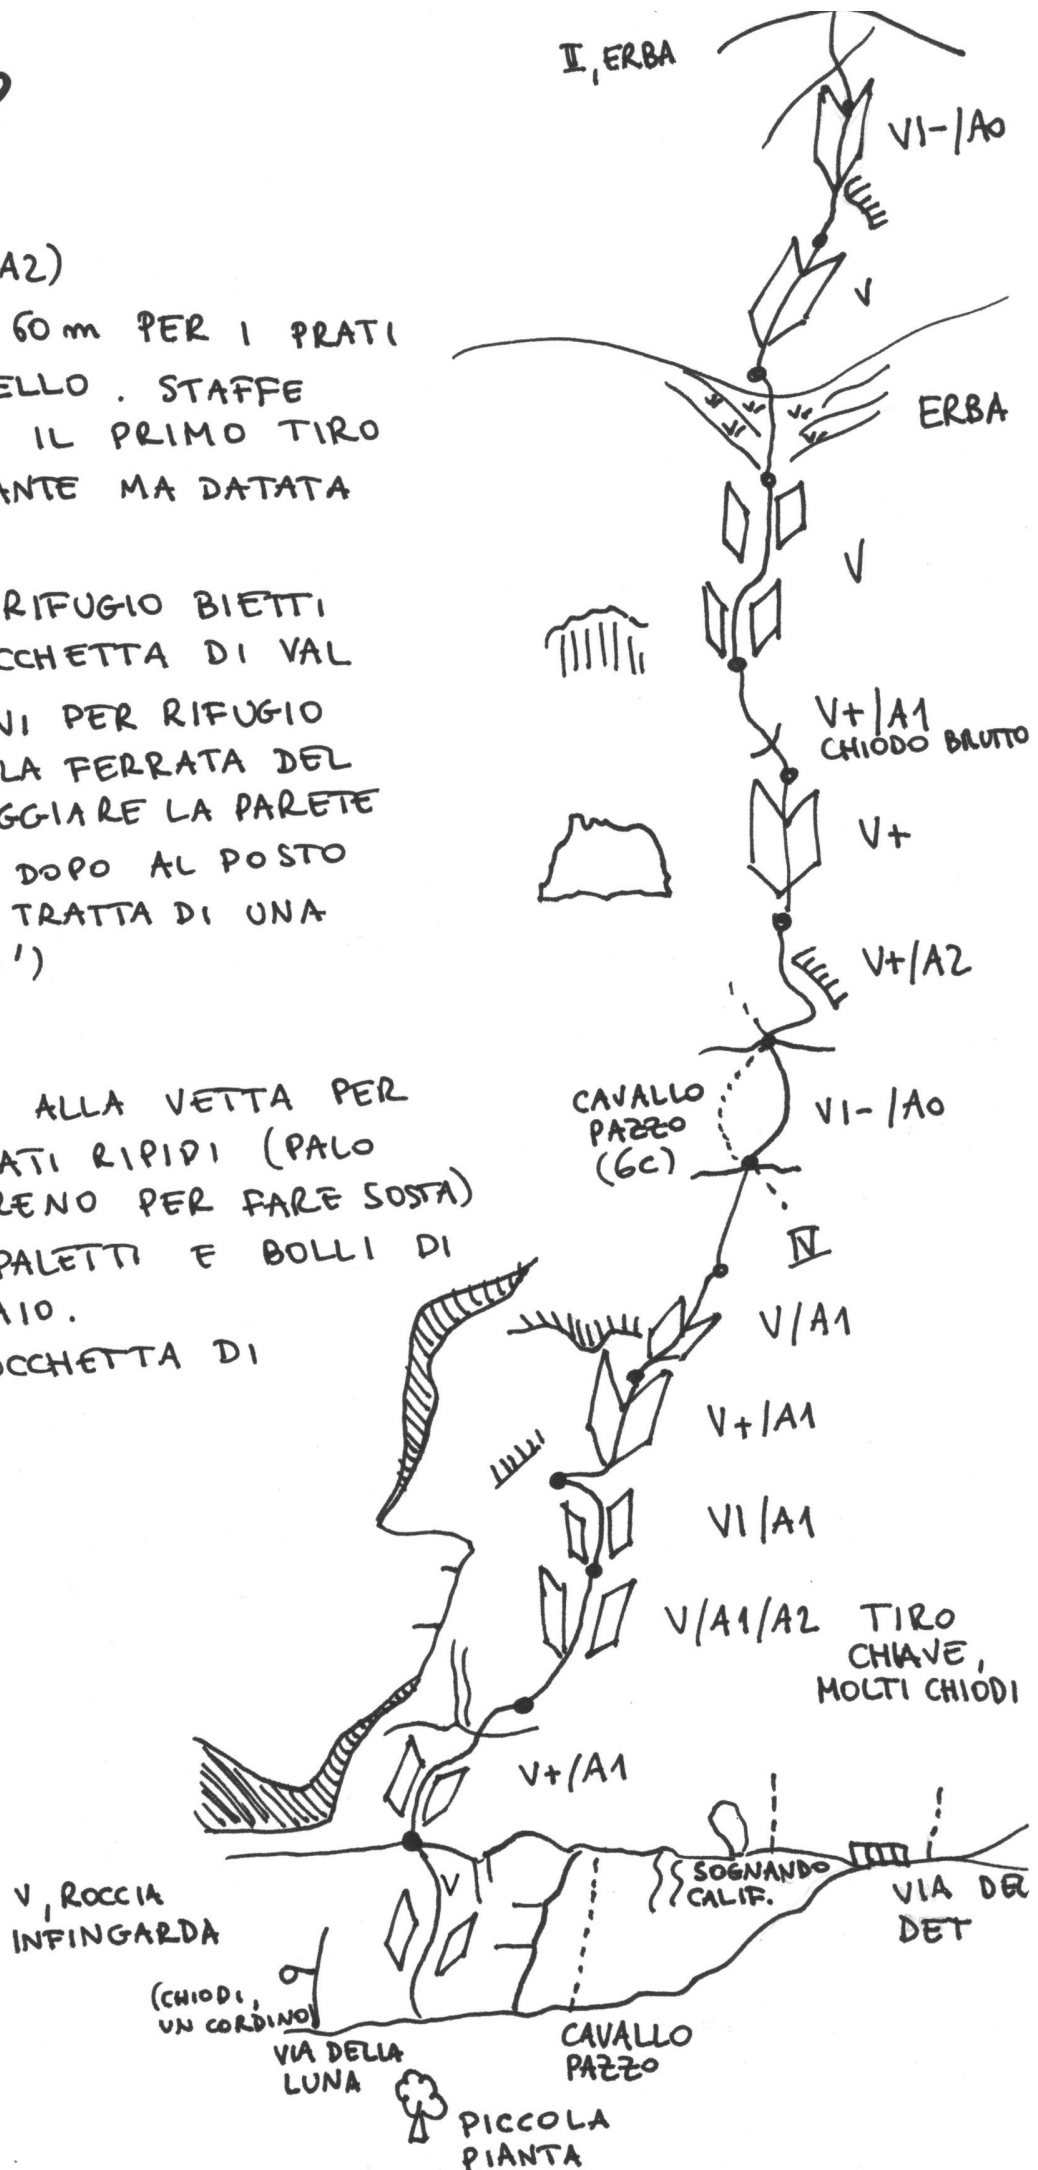 A2)
60 m PER I PRATI
ELLO. STAFFE
IL PRIMO TIRO
ANTE MA DATATA
RIFUGIO BIETTI
CCHETTA DI VAL
VI PER RIFUGIO
LA FERRATA DEL
GGIARE LA PARETE
DOPO AL POSTO
TRATTA DI UNA
')
ALLA VETTA PER
ATI RIPIDI (PALO
RENO PER FARE SOSTA)
PALETTI E BOLLI DI
AIO.
OCCHETTA DI
II, ERBA
VI-/A0
V
ERBA
V
V+/A1
CHIODO BRUTTO
V+
V+/A2
CAVALLO
PAZZO
(6C)
VI-/A0
IV
V/A1
V+/A1
VI/A1
V/A1/A2 TIRO
CHIAVE,
MOLTI CHIODI
V+/A1
V
SOGNANDO
CALIF.
VIA DEL
DET
V, ROCCIA
INFINGARDA
(CHIODI,
UN CORDINO)
VIA DELLA
LUNA
CAVALLO
PAZZO
PICCOLA
PIANTA